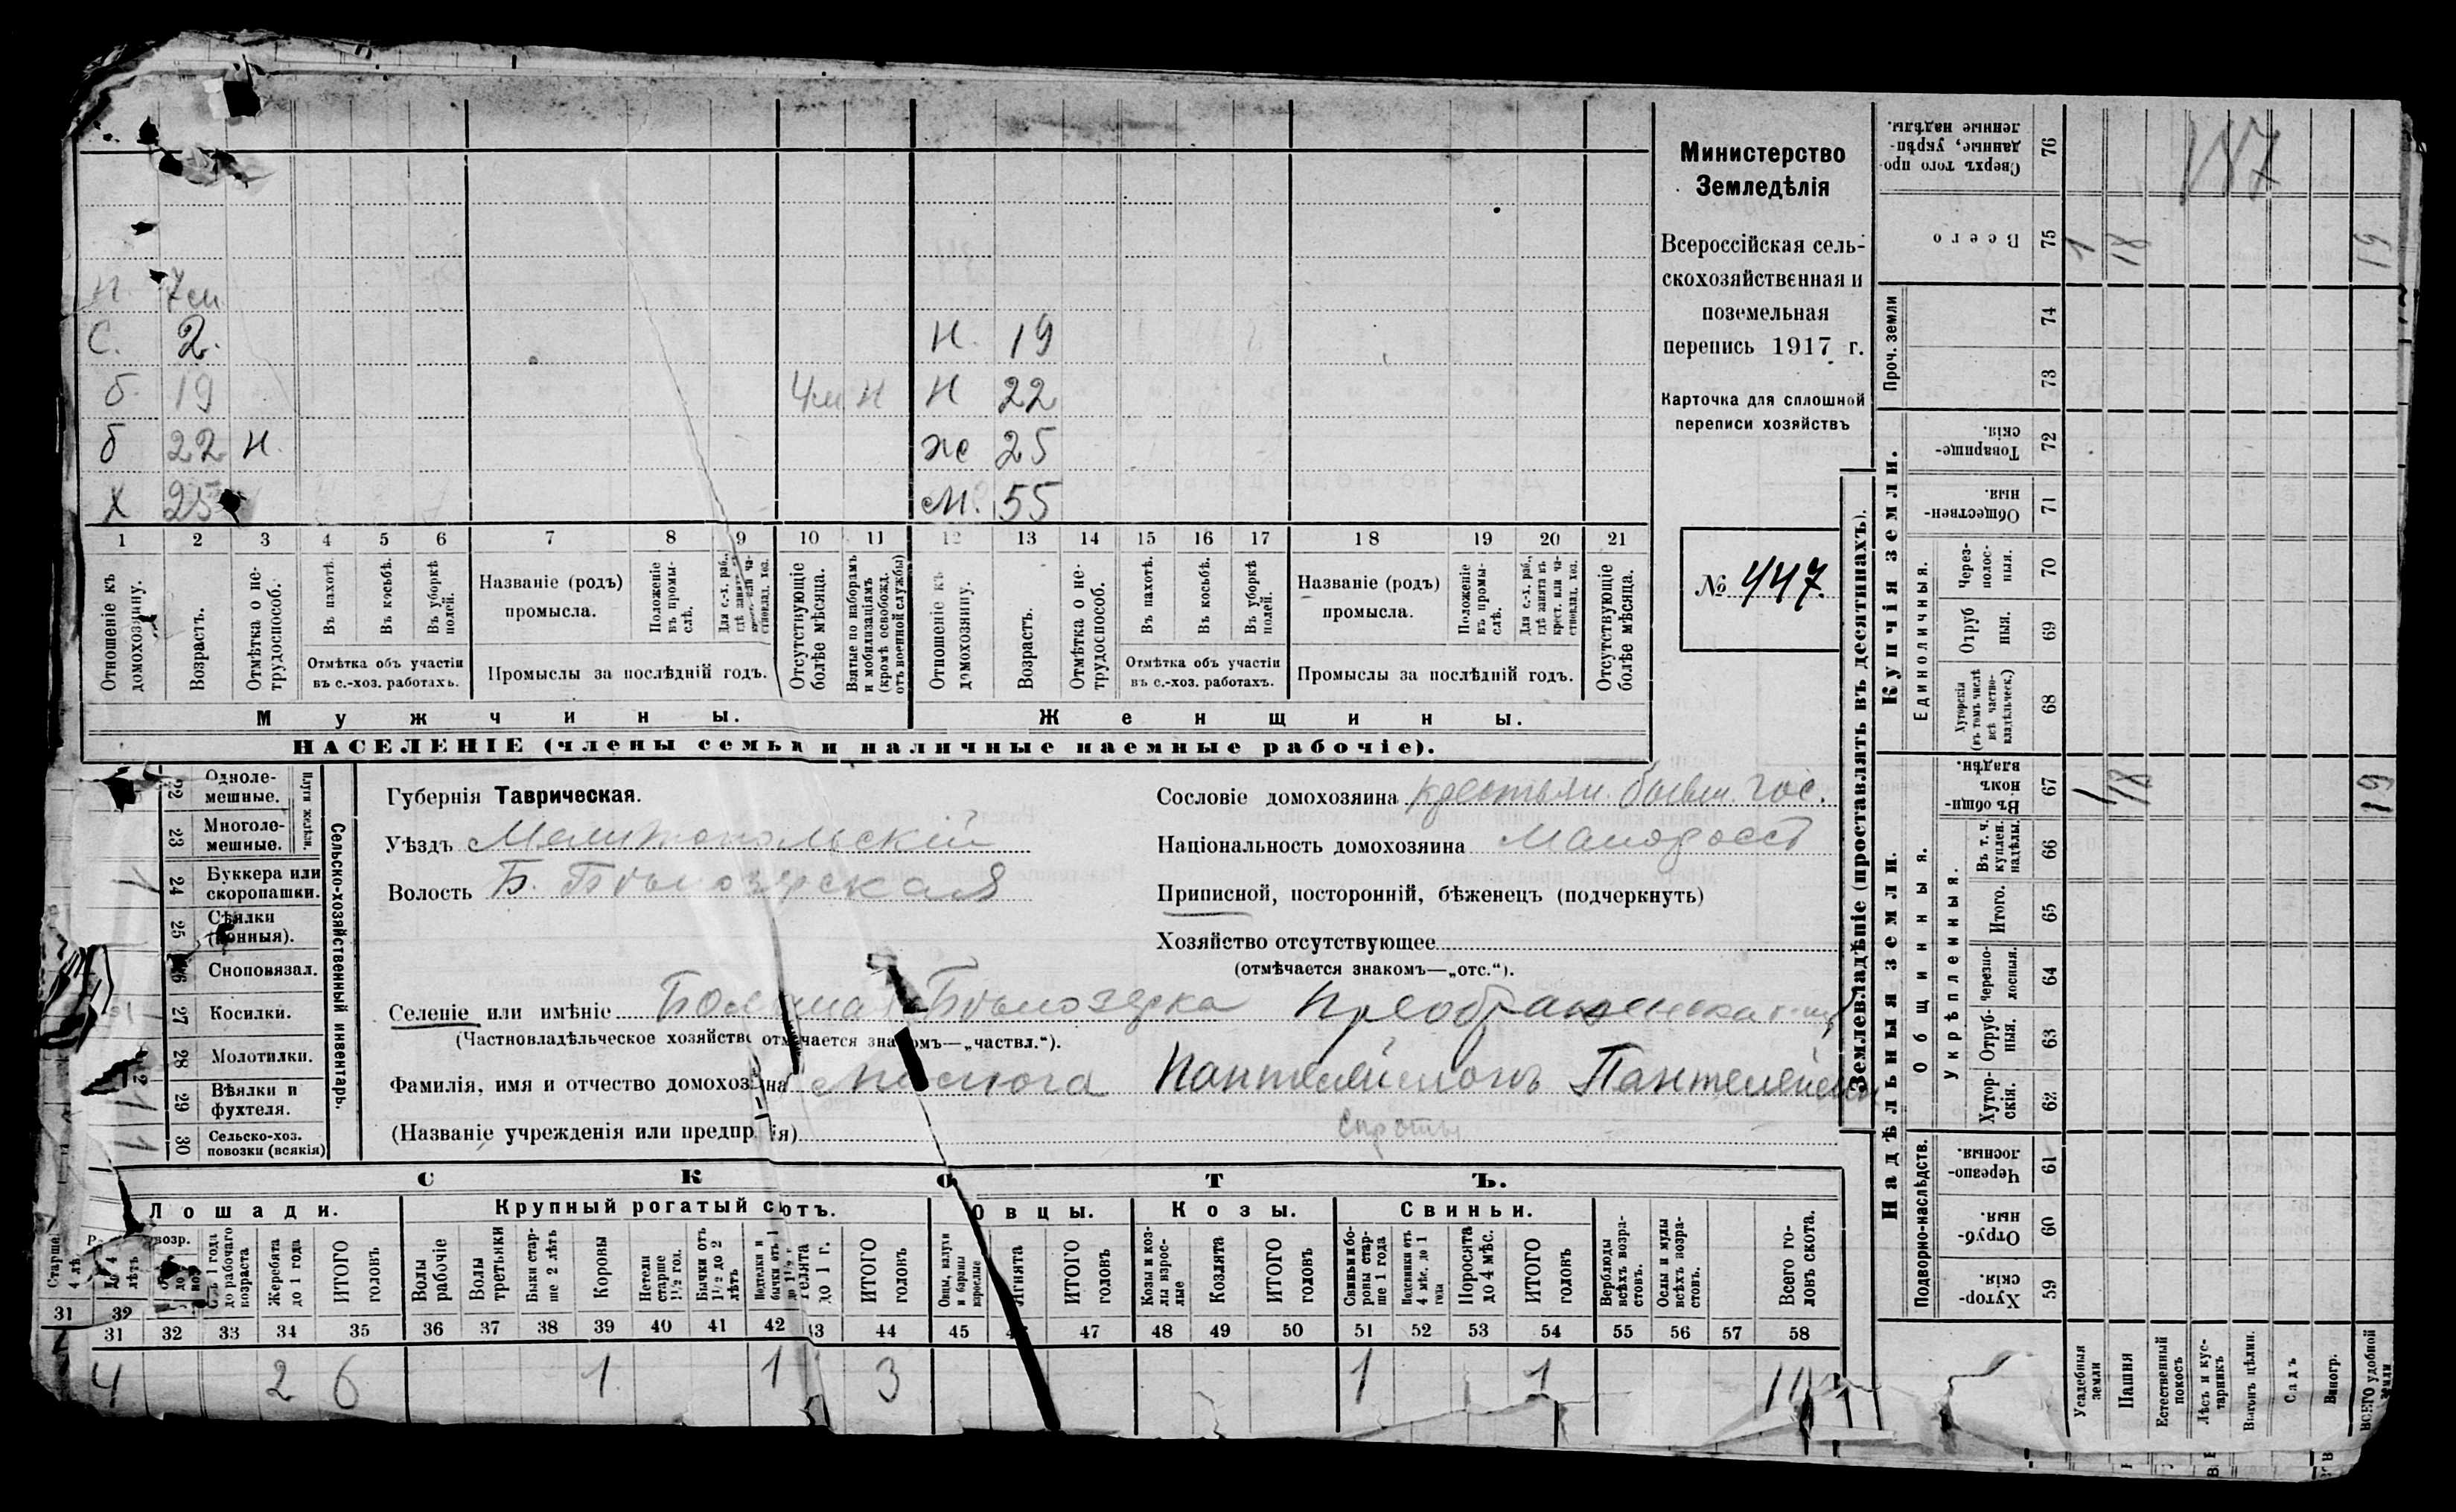 Министерство
Земледѣлія
Всероссійская сель-
скохозяйственная и
поземельная
перепись 1917 г.
Карточка для сплошной
переписи хозяйствъ
№ 447.
7м
С. 2. Н. 19
б. 19 4м Н Н 22
б 22 Н. ж 25
Х 25 М. 55
1 2 3 4 5 6 7 8 9 10 11 12 13 14 15 16 17 18 19 20 21
Отношеніе къ домохозяину.
Возрастъ.
Отмѣтка о не-трудоспособ.
Въ пахотѣ.
Въ косьбѣ.
Въ уборкѣ полей.
Отмѣтка объ участіи
въ с.-хоз. работахъ.
Названіе (родъ)
промысла.
Положеніе въ промы-слѣ.
Для с.-х. раб., гдѣ занятъ въ крест. или ча-стновлад. хоз.
Промыслы за послѣдній годъ.
Отсутствующіе болѣе мѣсяца.
Взятые по наборамъ и мобилизаціямъ (кромѣ освобожд. отъ военной службы)
Отношеніе къ домохозяину.
Возрастъ.
Отмѣтка о не-трудоспособ.
Въ пахотѣ.
Въ косьбѣ.
Въ уборкѣ полей.
Отмѣтка объ участіи
въ с.-хоз. работахъ.
Названіе (родъ)
промысла.
Положеніе въ промы-слѣ.
Для с.-х. раб., гдѣ занята въ крест. или ча-стновлад. хоз.
Промыслы за послѣдній годъ.
Отсутствующіе болѣе мѣсяца.
Мужчины. Женщины.
НАСЕЛЕНІЕ (члены семьи и наличные наемные рабочіе).
22 Однолемешные.
23 Многолемешные.
Плуги желѣзн.
24 Буккера или скоропашки.
25 Сѣялки (конныя).
26 Сноповязал.
27 Косилки.
28 Молотилки.
29 Вѣялки и фухтеля.
30 Сельско-хоз. повозки (всякія)
Сельско-хозяйственный инвентарь.
Губернія Таврическая.
Уѣздъ Мелитопольскій
Волость Б. Бѣлозерская
Сословіе домохозяина крестьян. бывш. гос.
Національность домохозяина Малоросъ
Приписной, посторонній, бѣженецъ (подчеркнуть)
Хозяйство отсутствующее
(отмѣчается знакомъ—„отс.“).
Селеніе или имѣніе Большая Бѣлозерка
(Частновладѣльческое хозяйство отмѣчается знакомъ—„частвл.“).
Фамилія, имя и отчество домохозяина
(Названіе учрежденія или предпріятія)
СКОТЪ.
Лошади. Крупный рогатый скотъ. Овцы. Козы. Свиньи.
Старше 4 лѣтъ
Отъ 1 года до рабочаго возраста
Жеребята до 1 года
ИТОГО головъ
Волы рабочіе
Волы третьяки
Быки старше 2 лѣтъ
Коровы
Нетели старше 1½ год.
Бычки отъ 1½ до 2 лѣтъ
Подтелки и бычки отъ 1 до 1½ г.
Телята до 1 г.
ИТОГО головъ
Овцы, валухи и бараны взрослые
Ягнята
ИТОГО головъ
Козы и козлы взрослые
Козлята
ИТОГО головъ
Свиньи и боровы старше 1 года
Подсвинки отъ 4 мѣс. до 1 года
Поросята до 4 мѣс.
ИТОГО головъ
Верблюды всѣхъ возрастовъ.
Ослы и мулы всѣхъ возрастовъ.
Всего головъ скота.
31 32
31 32 33 34 35 36 37 38 39 40 41 42 43 44 45 46 47 48 49 50 51 52 53 54 55 56 57 58
4 2 6 1 1 3 1 1
Землевладѣніе (проставлять въ десятинахъ).
Сверхъ того проданные, укрѣпленные надѣлы. 76
Всего 75 1 18 19
Проч. земли 74
73
Купчія земли.
Товарищескія. 72
Общественныя. 71
Единоличныя.
Черезполосныя. 70
Отрубныя. 69
Хуторскія (въ томъ числѣ всѣ частновладѣльческ.) 68
Надѣльныя земли.
Общинныя.
Въ общинномъ владѣн. 67 1 18 19
Укрѣпленныя.
Въ т. ч. куплен. надѣлы. 66
Итого. 65
Черезполосныя. 64
Отрубныя. 63
Хуторскія. 62
Подворно-наслѣдств.
Черезполосныя. 61
Отрубныя. 60
Хуторскія. 59
Усадебныя земли
Пашня
Естественный покосъ
Лѣсъ и кустарникъ
Выгонъ цѣлин.
Садъ
Виногр.
ВСЕГО удобной земли